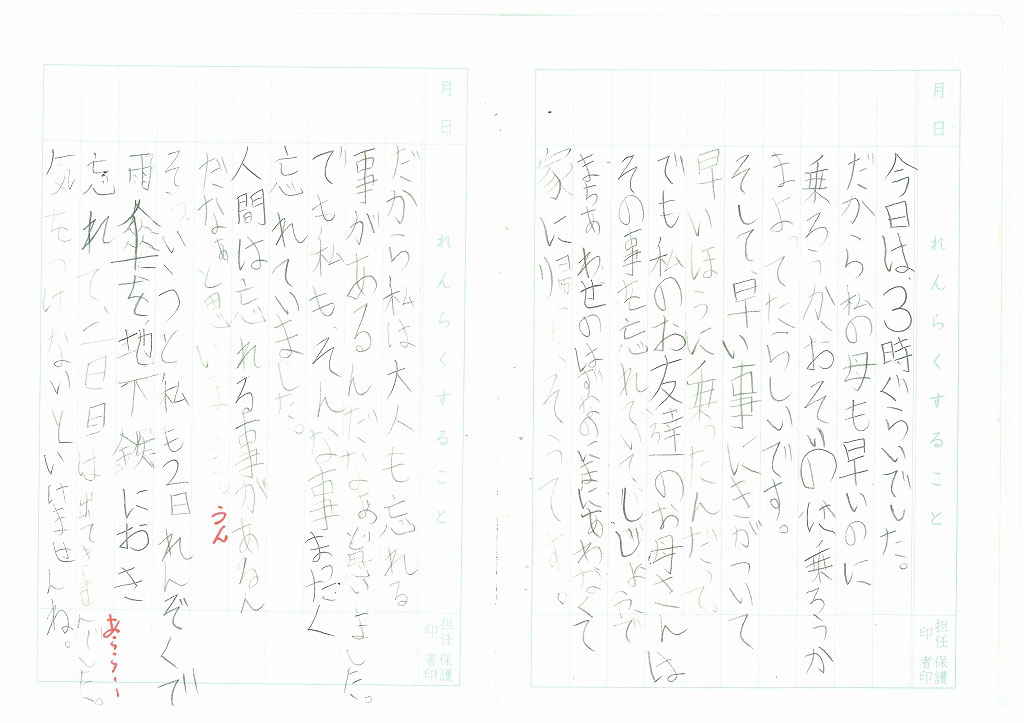 月 日
れんらくすること
担任印 保護者印
今日は、3時ぐらいでした。
だから私の母も早いのに
乗ろうか、おそいのに乗ろうか
まよってたらしいです。
そして、早い事にきがついて
早いほうに乗ったんだって。
でも私のお友達のお母さんは
その事を忘れていて、じじょうで
まちあわせのはずの
家に帰
月 日
れんらくすること
担任印 保護者印
だから私は大人も忘れる
事があるんだなぁと
でも私も、そんな事まったく
忘れていました。
人間は忘れる事があるん
だなぁと思いました。
うん
そういうと私も2日れんぞくで
雨傘を地下鉄におき
忘れて、二日目は出てきませんでした。
あららー
気をつけないといけませんね。